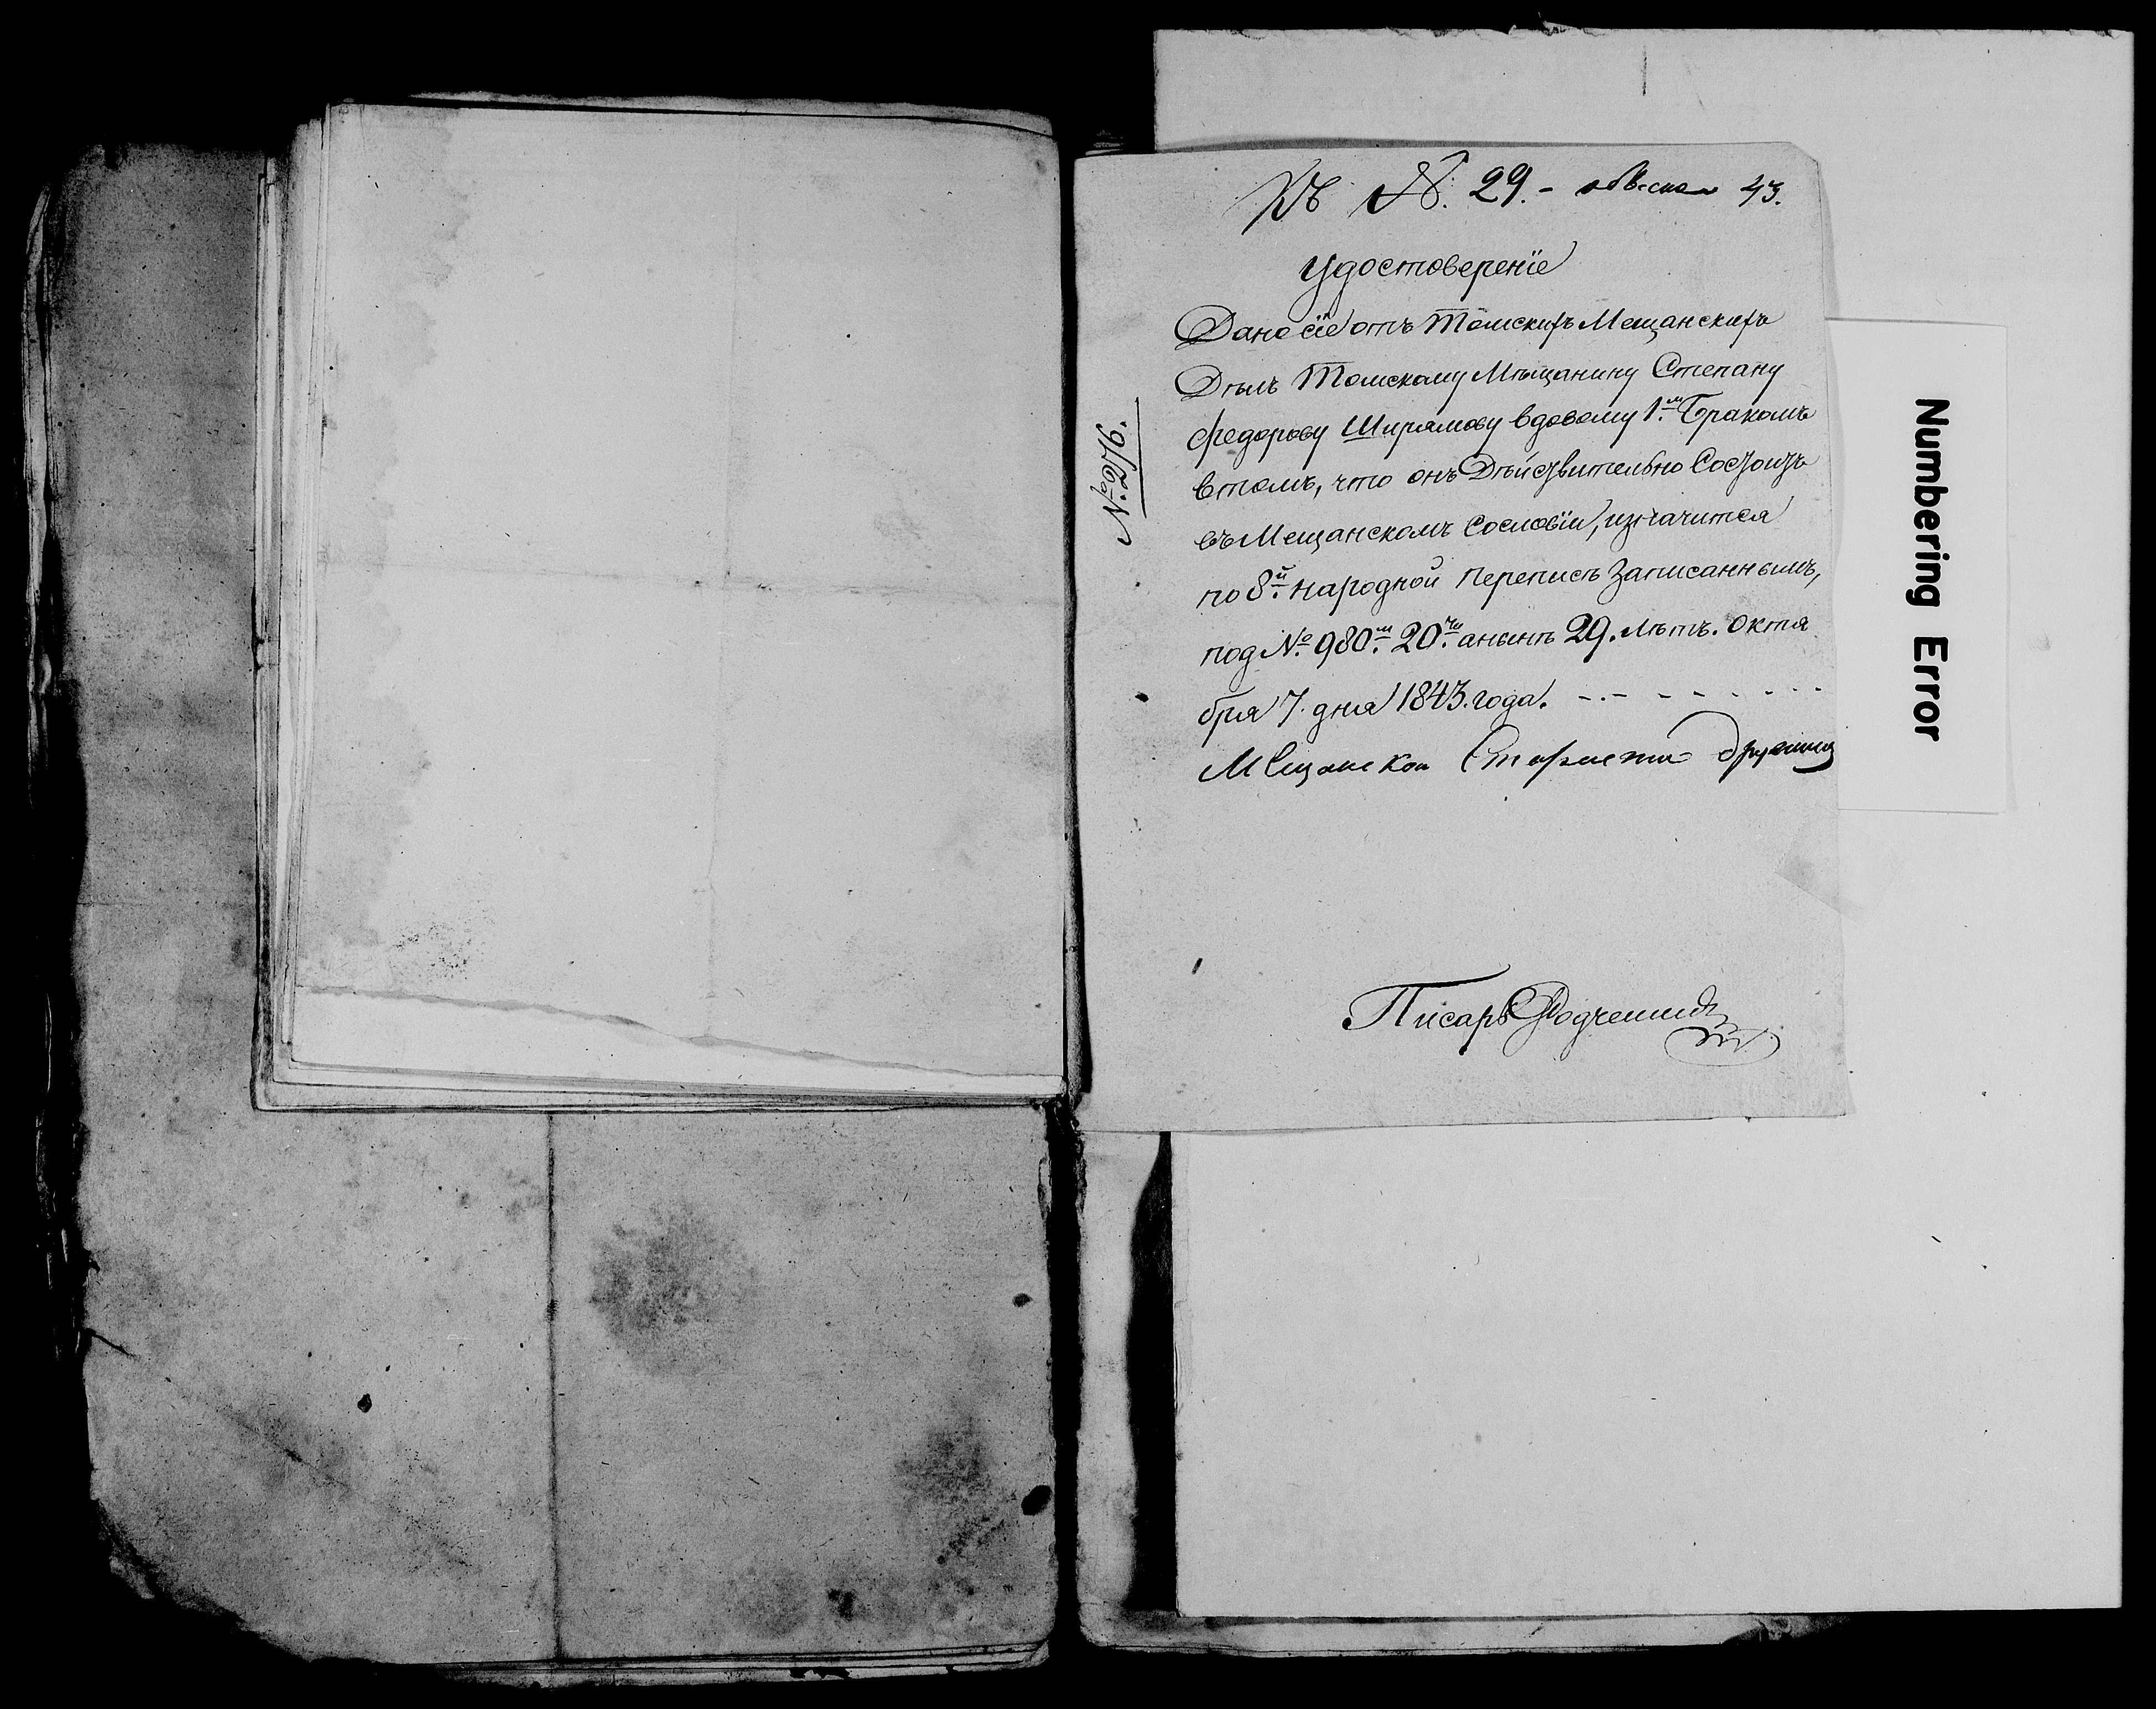 Къ №. 29. - обыскам 43.
Удостоверенїе
Дано сїе отъ Томскихъ Мещанскихъ
Дѣлъ Томскому Мѣщанину Степану
Федорову Ширямову вдовому 1.м Бракомъ
втомъ, что онъ Дѣйствительно Состоитъ
въ Мещанскомъ Сословїи, изначится
по 8.й народной переписѣ Записаннымъ,
под №. 980.м 20.ти анынѣ 29. лѣтъ. Октя
бря 7. дня 1843. года.
Мещанскои Староста
Писарь
№. 276.
Numbering Error